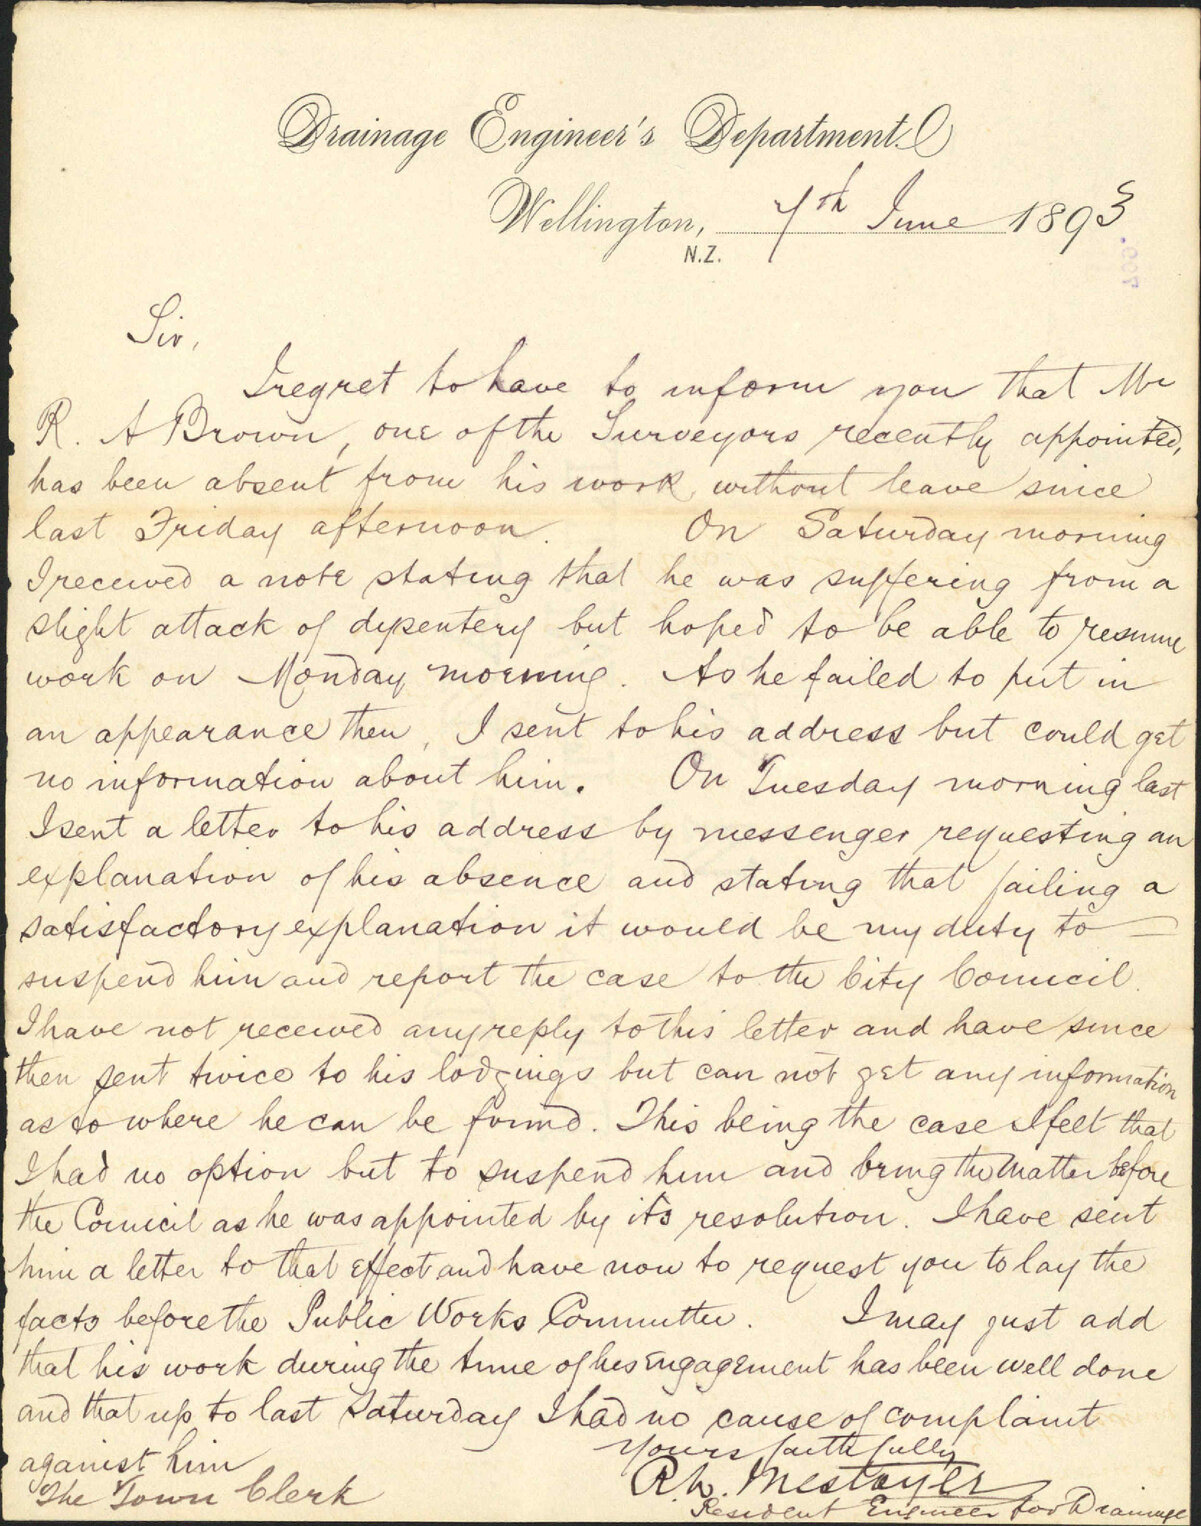 Drainage Engineer's Department.
Wellington, 7th June 1893
N.Z.
Sir,
I regret to have to inform you that Mr
R. A Brown, one of the Surveyors recently appointed,
has been absent from his work without leave since
last Friday afternoon. On Saturday morning
I received a note stating that he was suffering from a
slight attack of dysentery but hoped to be able to resume
work on Monday morning. As he failed to put in
an appearance then, I sent to his address but could get
no information about him. On Tuesday morning last
I sent a letter to his address by messenger requesting an
explanation of his absence and stating that failing a
satisfactory explanation it would be my duty to
suspend him and report the case to the City Council.
I have not received any reply to this letter and have since
then sent twice to his lodgings but can not get any information
as to where he can be found. This being the case I felt that
I had no option but to suspend him and bring the matter before
the Council as he was appointed by its resolution. I have sent
him a letter to that effect and have now to request you to lay the
facts before the Public Works Committee. I may just add
that his work during the time of his engagement has been well done
and that up to last Saturday I had no cause of complaint
against him
Yours faithfully
The Town Clerk
R. L. Mestayer
Resident Engineer for Drainage